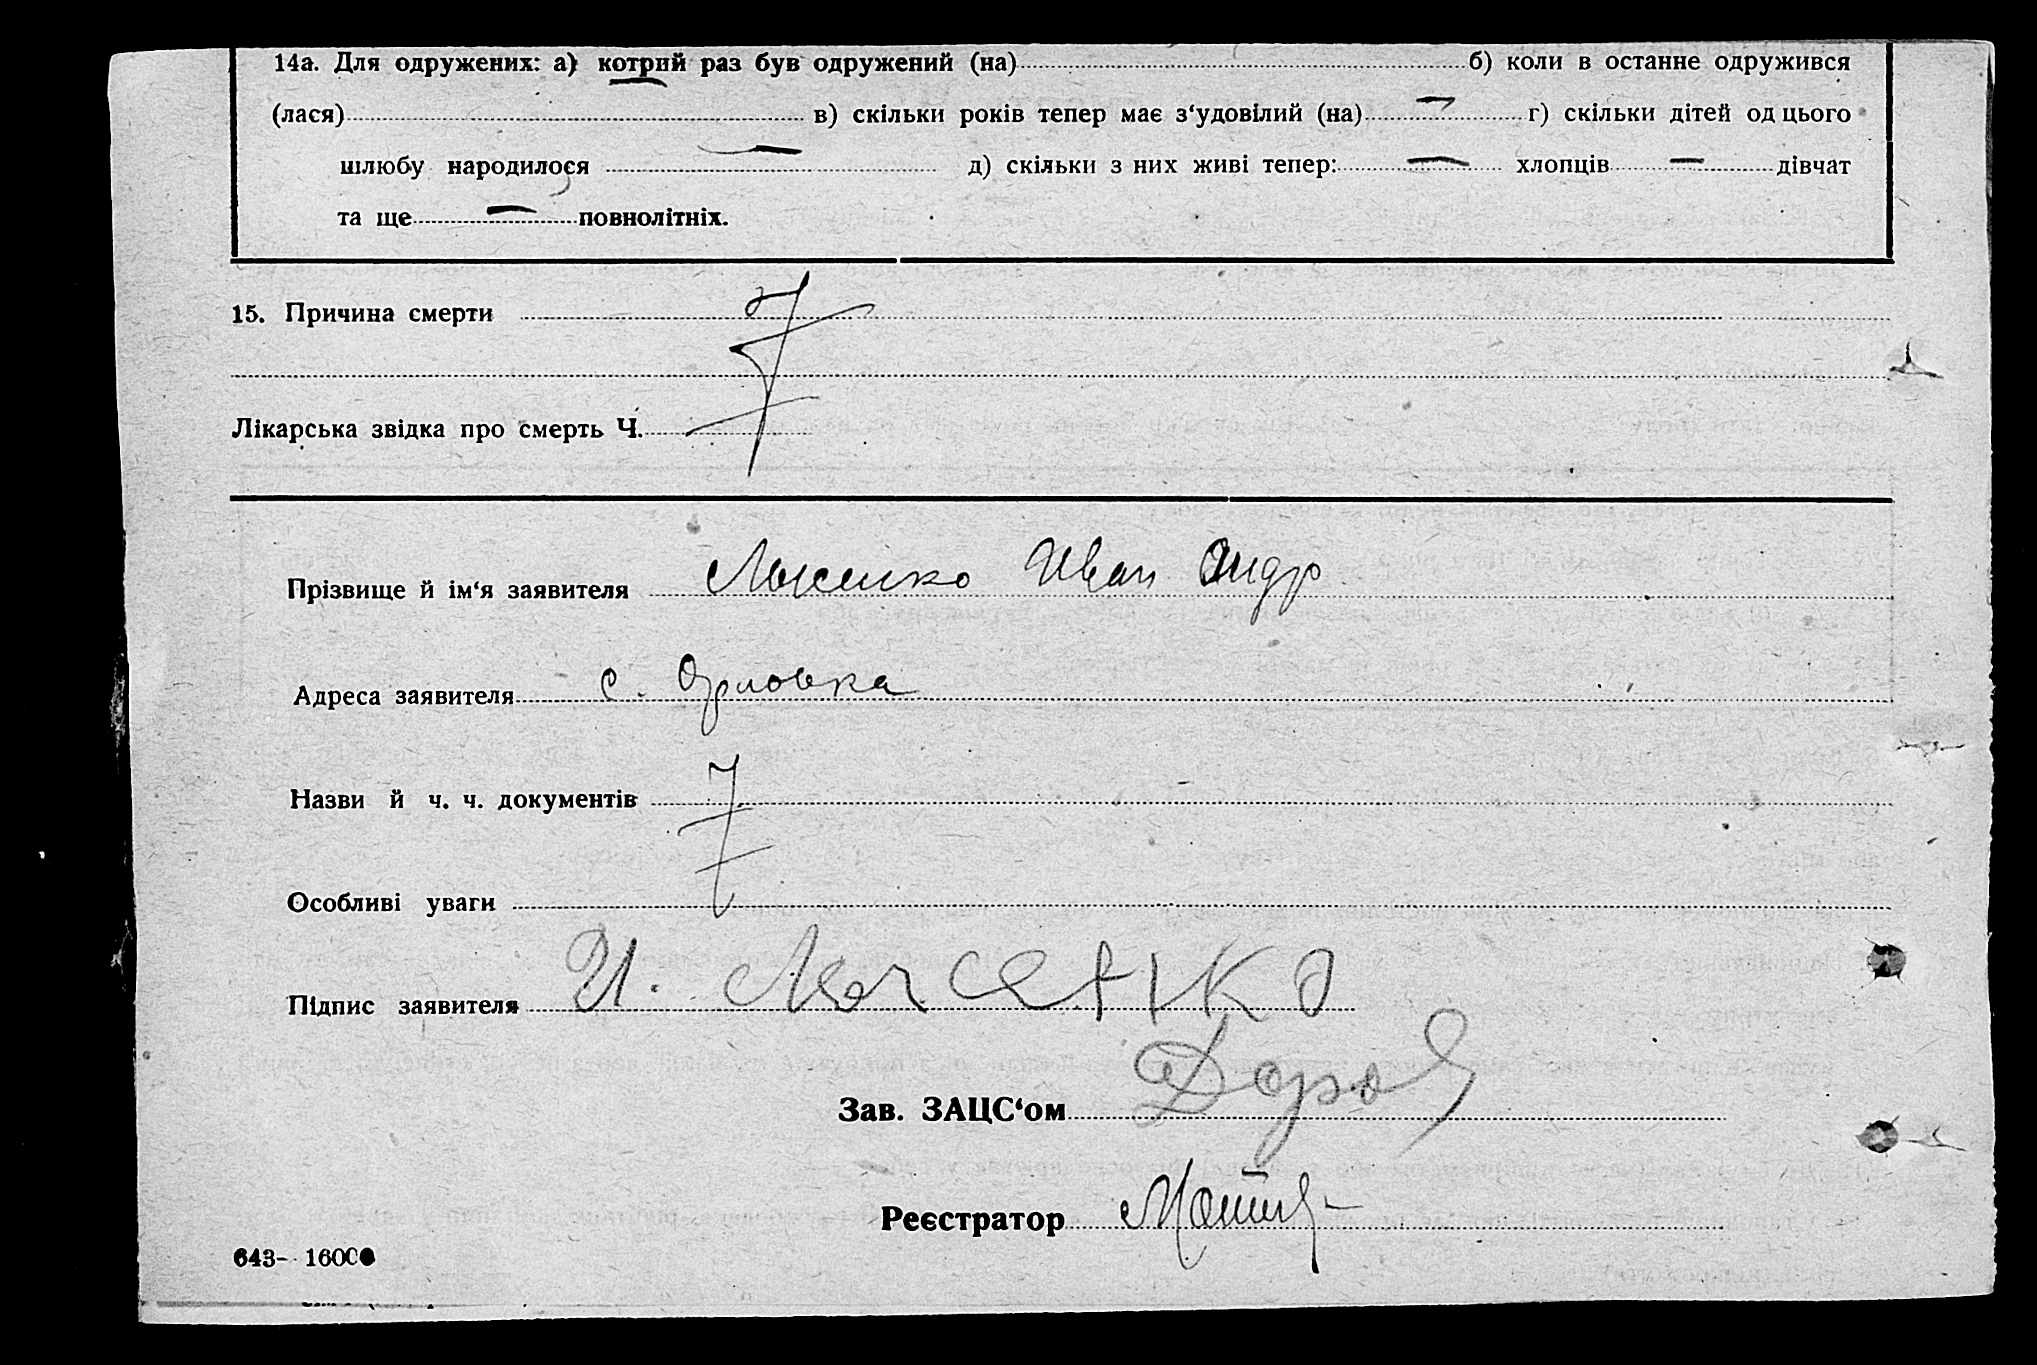 14а. Для одружених: а) котрий раз був одружений (на) б) коли в останне одружився
(лася) в) скільки років тепер має з‘удовілий (на) — г) скільки дітей од цього
шлюбу народилося — д) скільки з них живі тепер: — хлопців — дівчат
та ще — повнолітніх.
15. Причина смерти
Лікарська звідка про смерть Ч.
Прізвище й ім‘я заявителя Иван Андр
Адреса заявителя с. Орловка
Назви й ч. ч. документів
Особливі уваги
Підпис заявителя И.
Зав. ЗАЦС‘ом
Реєстратор
643- 16000